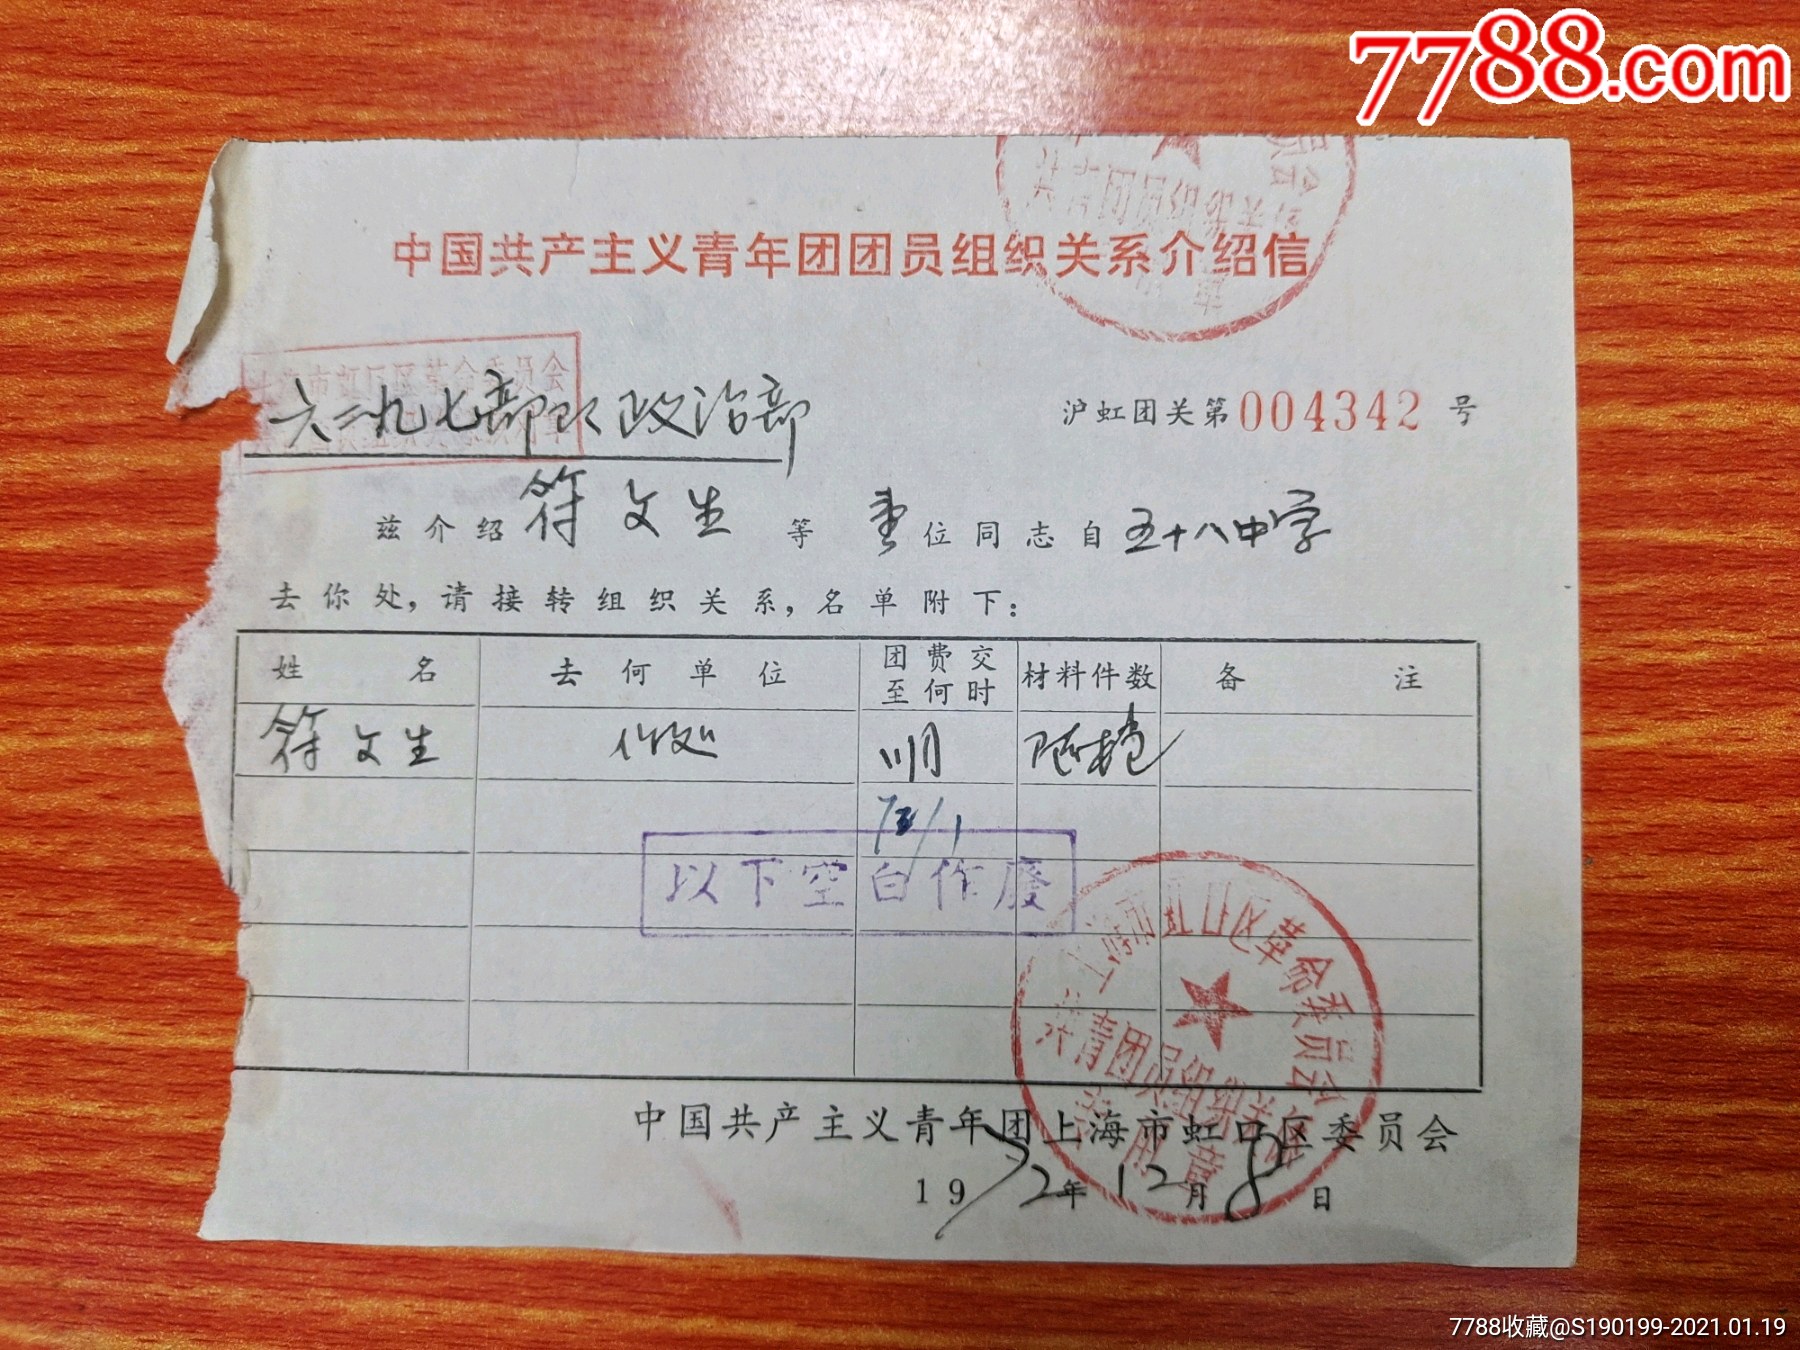 7788.com
共青团员组织关系
员会
章
中国共产主义青年团团员组织关系介绍信
上海市虹口区革命委员会
六二九七部队政治部
沪虹团关第004342号
兹介绍符文生等壹位同志自五十八中学
去你处，请接转组织关系，名单附下：
姓名 去何单位 团费交至何时 材料件数 备注
符文生 你处 11月 随档
73/1
以下空白作废
上海市虹口区革命委员会
共青团员组织关系
专用章
中国共产主义青年团上海市虹口区委员会
1972年12月8日
7788收藏@S190199-2021.01.19